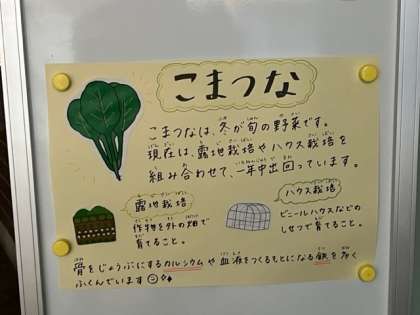 こまつな
こまつなは、冬が旬の野菜です。
現在は、露地栽培やハウス栽培を
組み合わせて、一年中出回っています。
露地栽培
作物を外の畑で
育てること。
ハウス栽培
ビニールハウスなどの
しせつで育てること。
骨をじょうぶにするカルシウムや血液をつくるもとになる鉄を多く
ふくんでいます